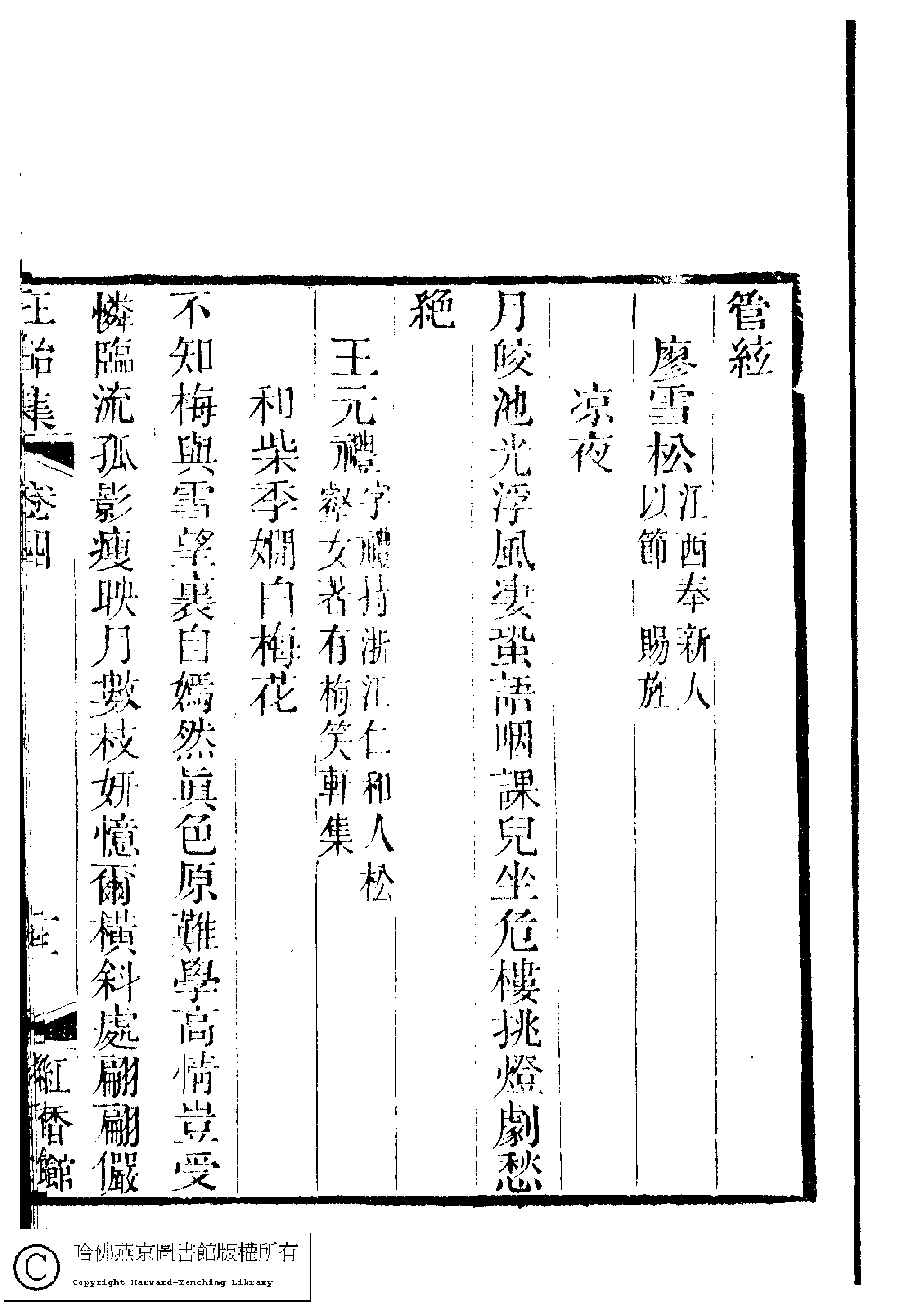 管絃
廖雪松江西奉新人
以節 賜旌
凉夜
月皎池光浮風淒蛩語咽課兒坐危樓挑燈劇愁
絶
王元禮字禮持浙江仁和人松
壑女著有梅笑軒集
和柴季嫻白梅花
不知梅與雪望裏白嫣然眞色原難學高情豈受
憐臨流孤影瘦映月數枝妍憶爾橫斜處翩翩儼
卷四
紅香館
哈佛燕京圖書館版權所有
Copyright Harvard-Yenching Library